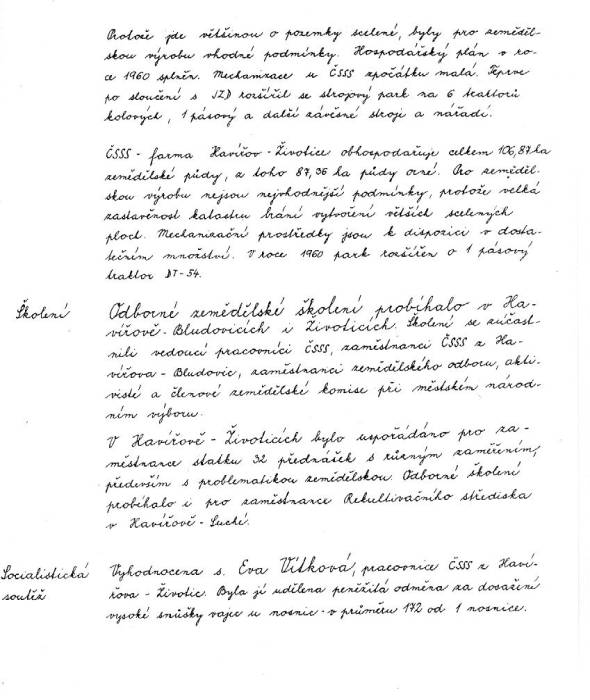 Protože jde většinou o pozemky scelené, byly pro zeměděl-
skou výrobu vhodné podmínky. Hospodářský plán v ro-
ce 1960 splněn. Mechanizace u ČSSS zpočátku malá. Teprve
po sloučení s JZD rozšířil se strojový park na 6 traktorů
kolových, 1 pásový a další závěsné stroje a nářadí.
ČSSS - farma Havířov - Životice obhospodařuje celkem 106,87 ha
zemědělské půdy, z toho 87,36 ha půdy orné. Pro zeměděl-
skou výrobu nejsou nejvhodnější podmínky, protože velká
zastavěnost katastru brání vytvoření větších scelených
ploch. Mechanizační prostředky jsou k dispozici v dosta-
tečném množství. V roce 1960 park rozšířen o 1 pásový
traktor DT-54.
Školení
Odborné zemědělské školení probíhalo v Ha-
vířově - Bludovicích i Životicích. Školení se zúčast-
nili vedoucí pracovníci ČSSS, zaměstnanci ČSSS z Ha-
vířova - Bludovic, zaměstnanci zemědělského odboru, akti-
visté a členové zemědělské komise při městském národ-
ním výboru.
V Havířově - Životicích bylo uspořádáno pro za-
městnance statku 32 přednášek s různým zaměřením,
především s problematikou zemědělskou. Odborné školení
probíhalo i pro zaměstnance Rekultivačního střediska
v Havířově - Suché.
Socialistická
soutěž
Vyhodnocena s. Eva Vítková, pracovnice ČSSS z Haví-
řova - Životic. Byla jí udělena peněžitá odměna za dosažení
vysoké snůšky vajec u nosnic - v průměru 172 od 1 nosnice.